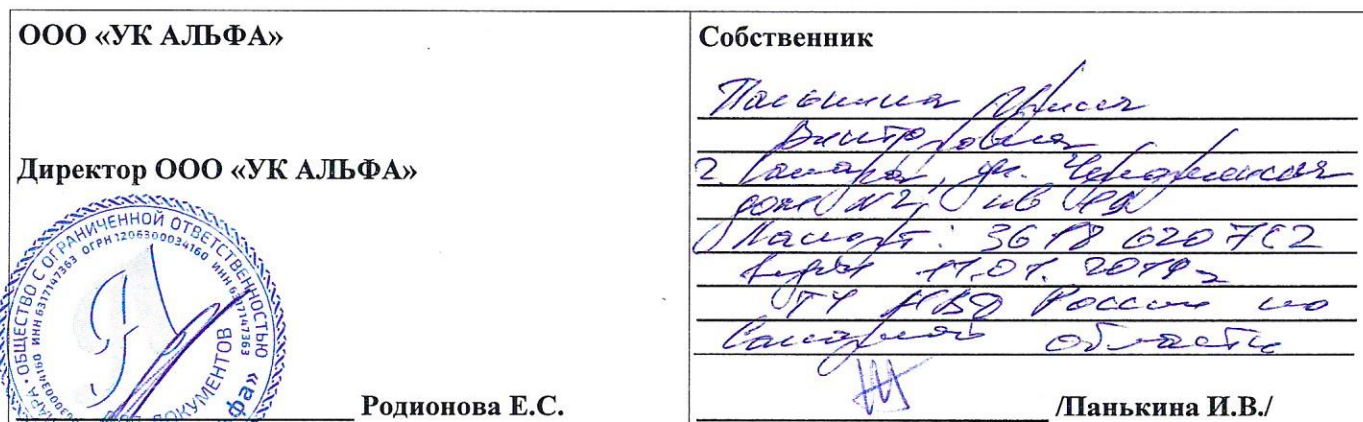 ООО «УК АЛЬФА»
Директор ООО «УК АЛЬФА»
ОБЩЕСТВО С ОГРАНИЧЕННОЙ ОТВЕТСТВЕННОСТЬЮ
ИНН 6317147363 ОГРН 1206300034160 ИНН 6317147363
ДОКУМЕНТОВ
Родионова Е.С.
Собственник
Панькина
г. Самара, ул.
дом №2, кв
Паспорт: 3618 620762
11.01.2019г
ГУ МВД России по
Самарской области
/Панькина И.В./